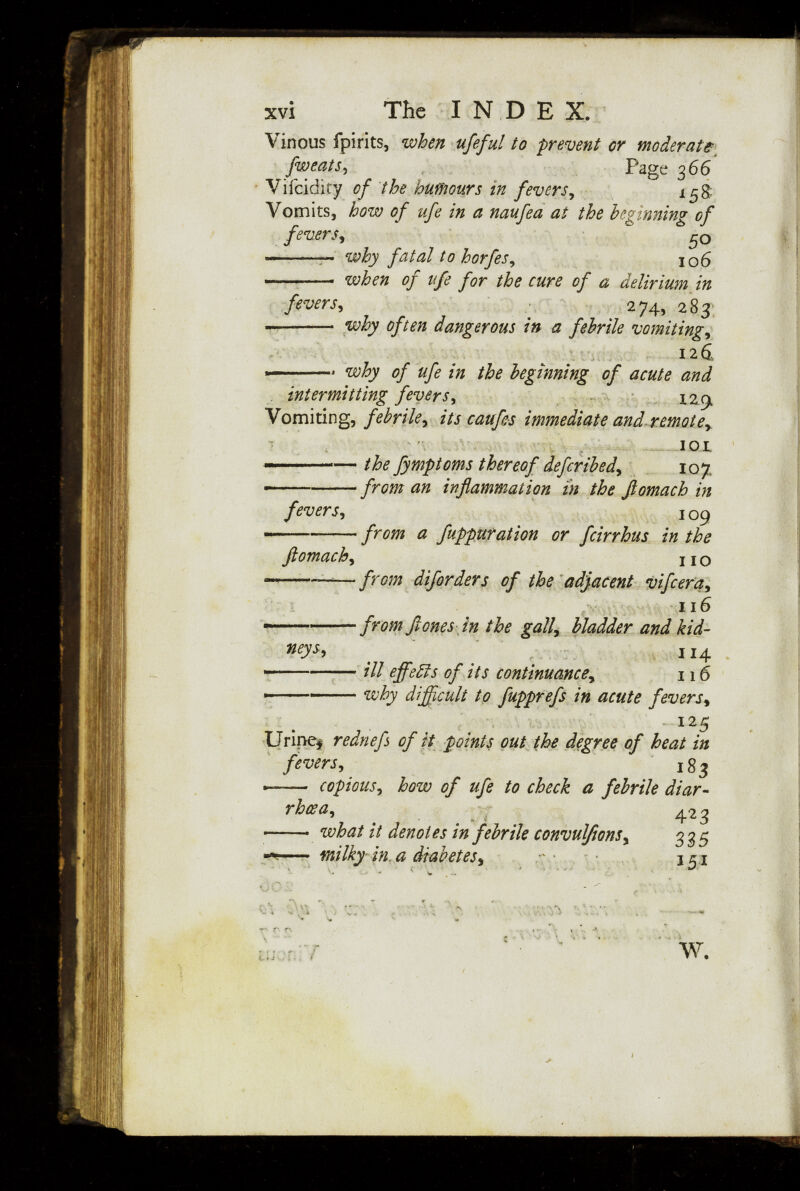 xvi The INDEX.
Vinous ſpirits, when uſeful to prevent or moderate
ſweats, Page 366
Viſcidity of the humours in fevers, 158
Vomits, how of uſe in a nauſea at the beginning of
fevers, 50
—— why fatal to horſes, 106
—— when of uſe for the cure of a delirium in
fevers, 274, 283
—— why often dangerous in a febrile vomiting,
126
—— why of uſe in the beginning of acute and
intermitting fevers, 129
Vomiting, febrile, its cauſes immediate and remote,
101
—— the ſymptoms thereof deſcribed, 107
—— from an inflammation in the ſtomach in
fevers, 109
—— from a ſuppuration or ſcirrhus in the
ſtomach, 110
—— from diſorders of the adjacent viſcera,
116
—— from ſtones in the gall, bladder and kid-
neys, 114
—— ill effects of its continuance, 116
—— why difficult to ſuppreſs in acute fevers,
125
Urine, redneſs of it points out the degree of heat in
fevers, 183
—— copious, how of uſe to check a febrile diar-
rhœa, 423
—— what it denotes in febrile convulſions, 335
—— milky in a diabetes, 151
W.